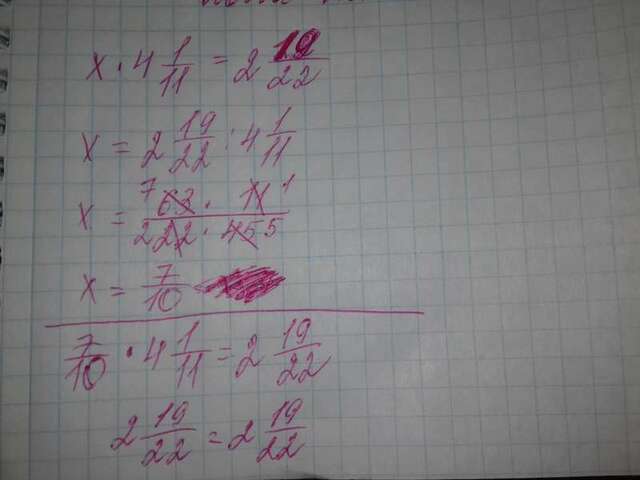 x · 4 1/11 = 2 19/22
x = 2 19/22 : 4 1/11
x = 7 63 · 11 1 / 2 22 · 45 5
x = 7/10
7/10 · 4 1/11 = 2 19/22
2 19/22 = 2 19/22